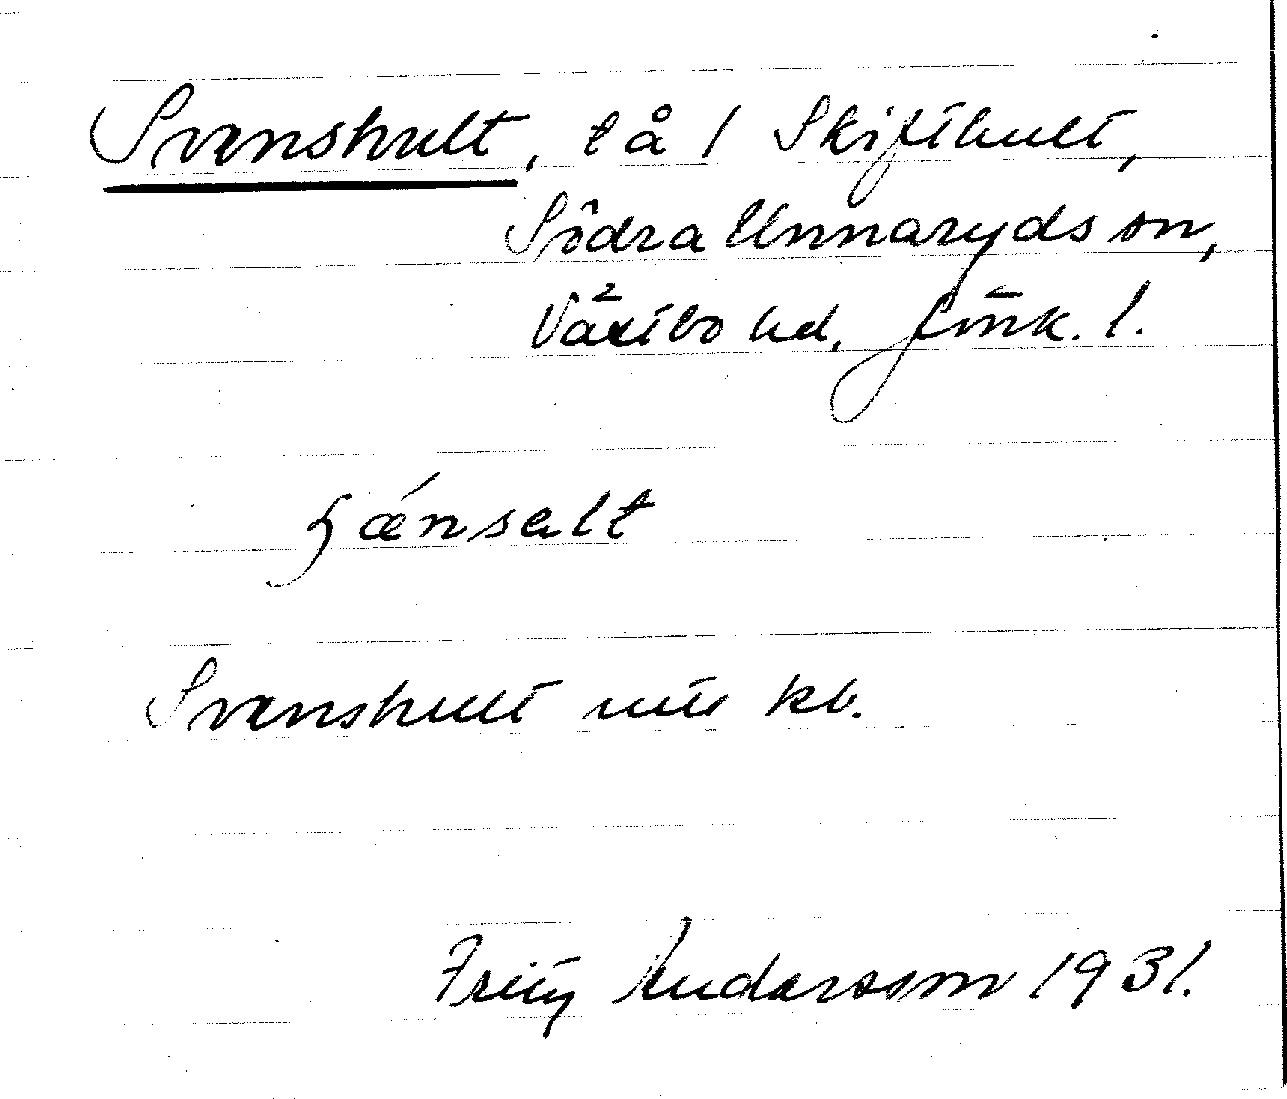 Svenshult, tå 1 Skifthult,
Södra Unnaryds sn,
Västbo hd, Jönk. l.
sænselt
Svenshult uti kb.
Fritz Andersson 1931.